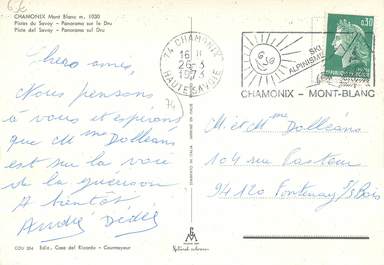 CHAMONIX Mont Blanc m. 1030
Pistes du Savoy - Panorama sur le Dru
Piste del Savoy - Panorama sul Dru
74 CHAMONIX
16 H
26-3
1973
HAUTE SAVOIE
SKI
ALPINISME
CHAMONIX - MONT-BLANC
0,30
74
Chers amis,
Nous pensons
à vous et espérons
que Mme Dolléans
est sur la voie
de la guérison
A bientôt
André Dédée
M. et Mme Dolléans
104 rue Pasteur
94120 Fontenay s/s Bois
COU 204 Ediz. Casa del Ricordo - Courmayeur